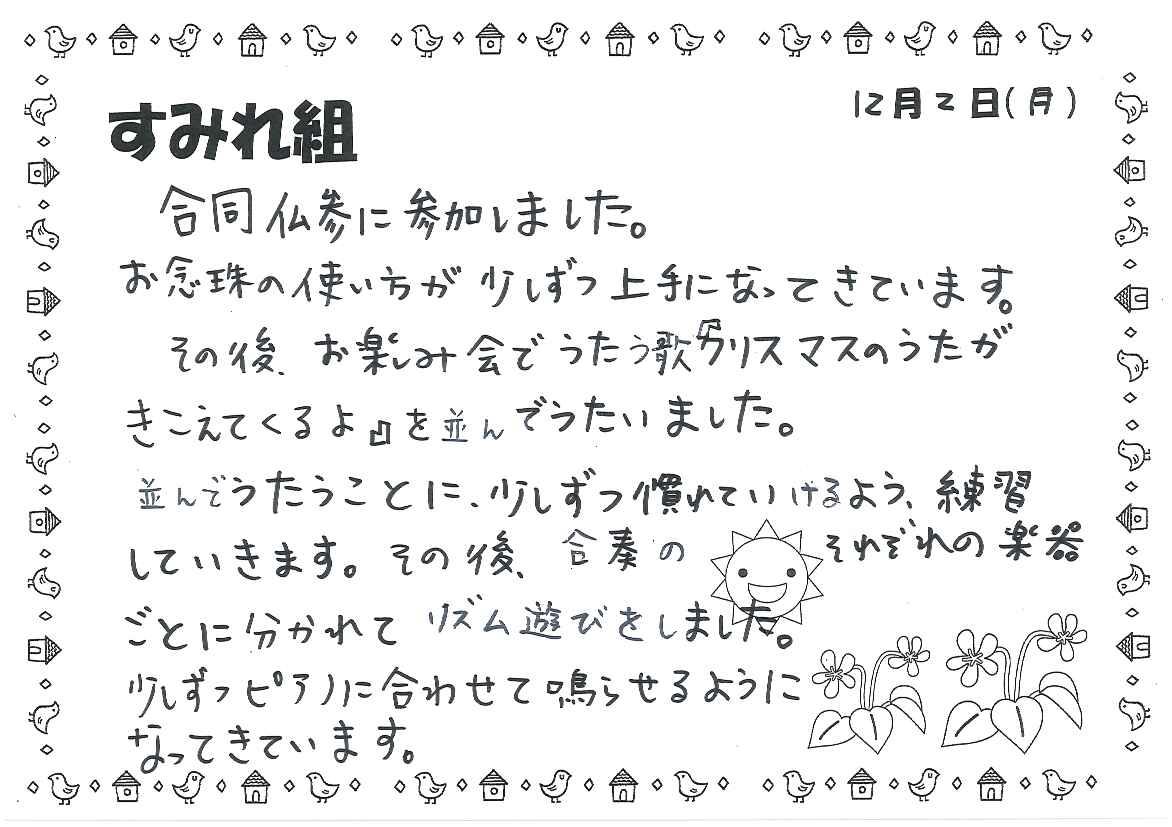 12月2日(月)
すみれ組
合同仏参に参加しました。
お念珠の使い方が少しずつ上手になってきています。
その後、お楽しみ会でうたう歌『クリスマスのうたが
きこえてくるよ』を並んでうたいました。
並んでうたうことに、少しずつ慣れていけるよう、練習
していきます。その後、合奏のそれぞれの楽器
ごとに分かれてリズム遊びをしました。
少しずつピアノに合わせて鳴らせるように
なってきています。